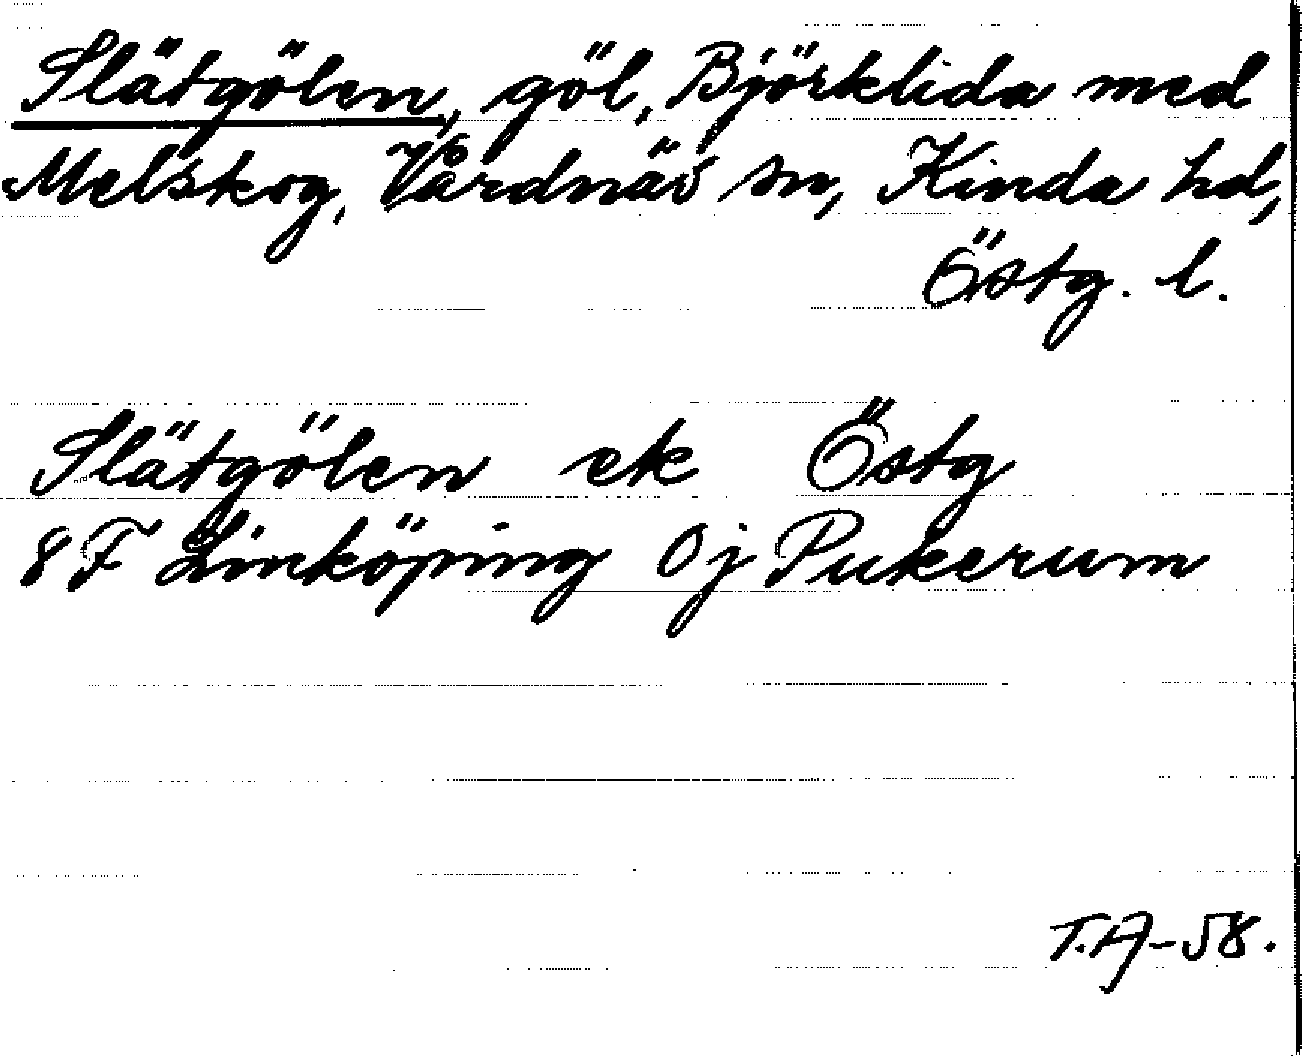 Slätgölen, göl, Björklida med
Melskog, Vårdnäs sn, Kinda hd,
Östg. l.
Slätgölen ek Östg
8F Linköping 0j Pukerum
T.A-58.